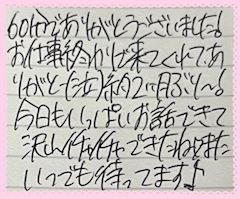 60分でありがとうございました!
お仕事終わりに来てくれてあ
りがとう(泣)約2ヶ月ぶり〜!
今日もいっぱいお話できて
沢山イチャイチャできたねまた
いつでも待ってます♪